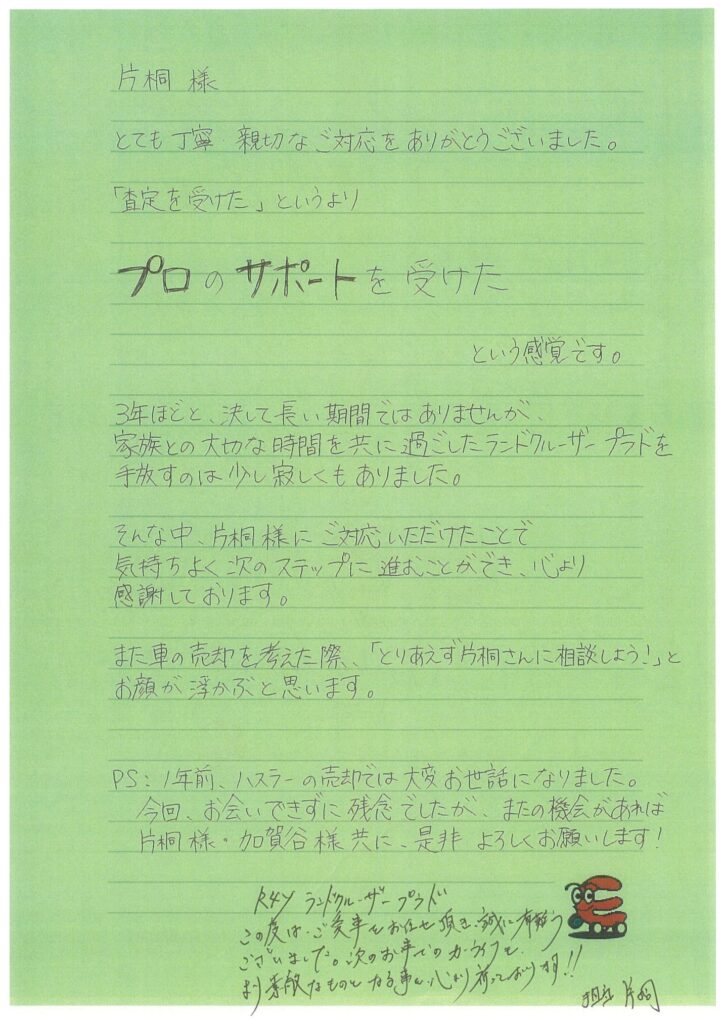 片桐 様
とても丁寧・親切なご対応をありがとうございました。
「査定を受けた」というより
プロのサポートを受けた
という感覚です。
3年ほどと、決して長い期間ではありませんが、
家族との大切な時間を共に過ごしたランドクルーザープラドを
手放すのは少し寂しくもありました。
そんな中、片桐様にご対応いただけたことで
気持ちよく次のステップに進むことができ、心より
感謝しております。
また車の売却を考えた際、「とりあえず片桐さんに相談しよう!」と
お顔が浮かぶと思います。
PS: 1年前、ハスラーの売却では大変お世話になりました。
今回、お会いできずに残念でしたが、またの機会があれば
片桐様・加賀谷様共に、是非よろしくお願いします!
R4y ランドクルーザープラド
この度は、ご愛車をお任せ頂き、誠に有難う
ございました。次のお車でのカーライフも、
より素敵なものとなる事を心より祈っております!!
担当 片桐